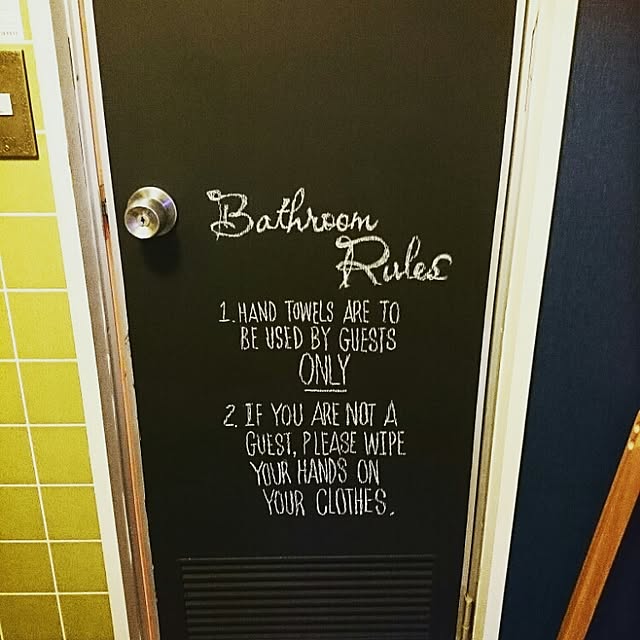 Bathroom
Rules
1. HAND TOWELS ARE TO
BE USED BY GUESTS
ONLY
2. IF YOU ARE NOT A
GUEST, PLEASE WIPE
YOUR HANDS ON
YOUR CLOTHES.